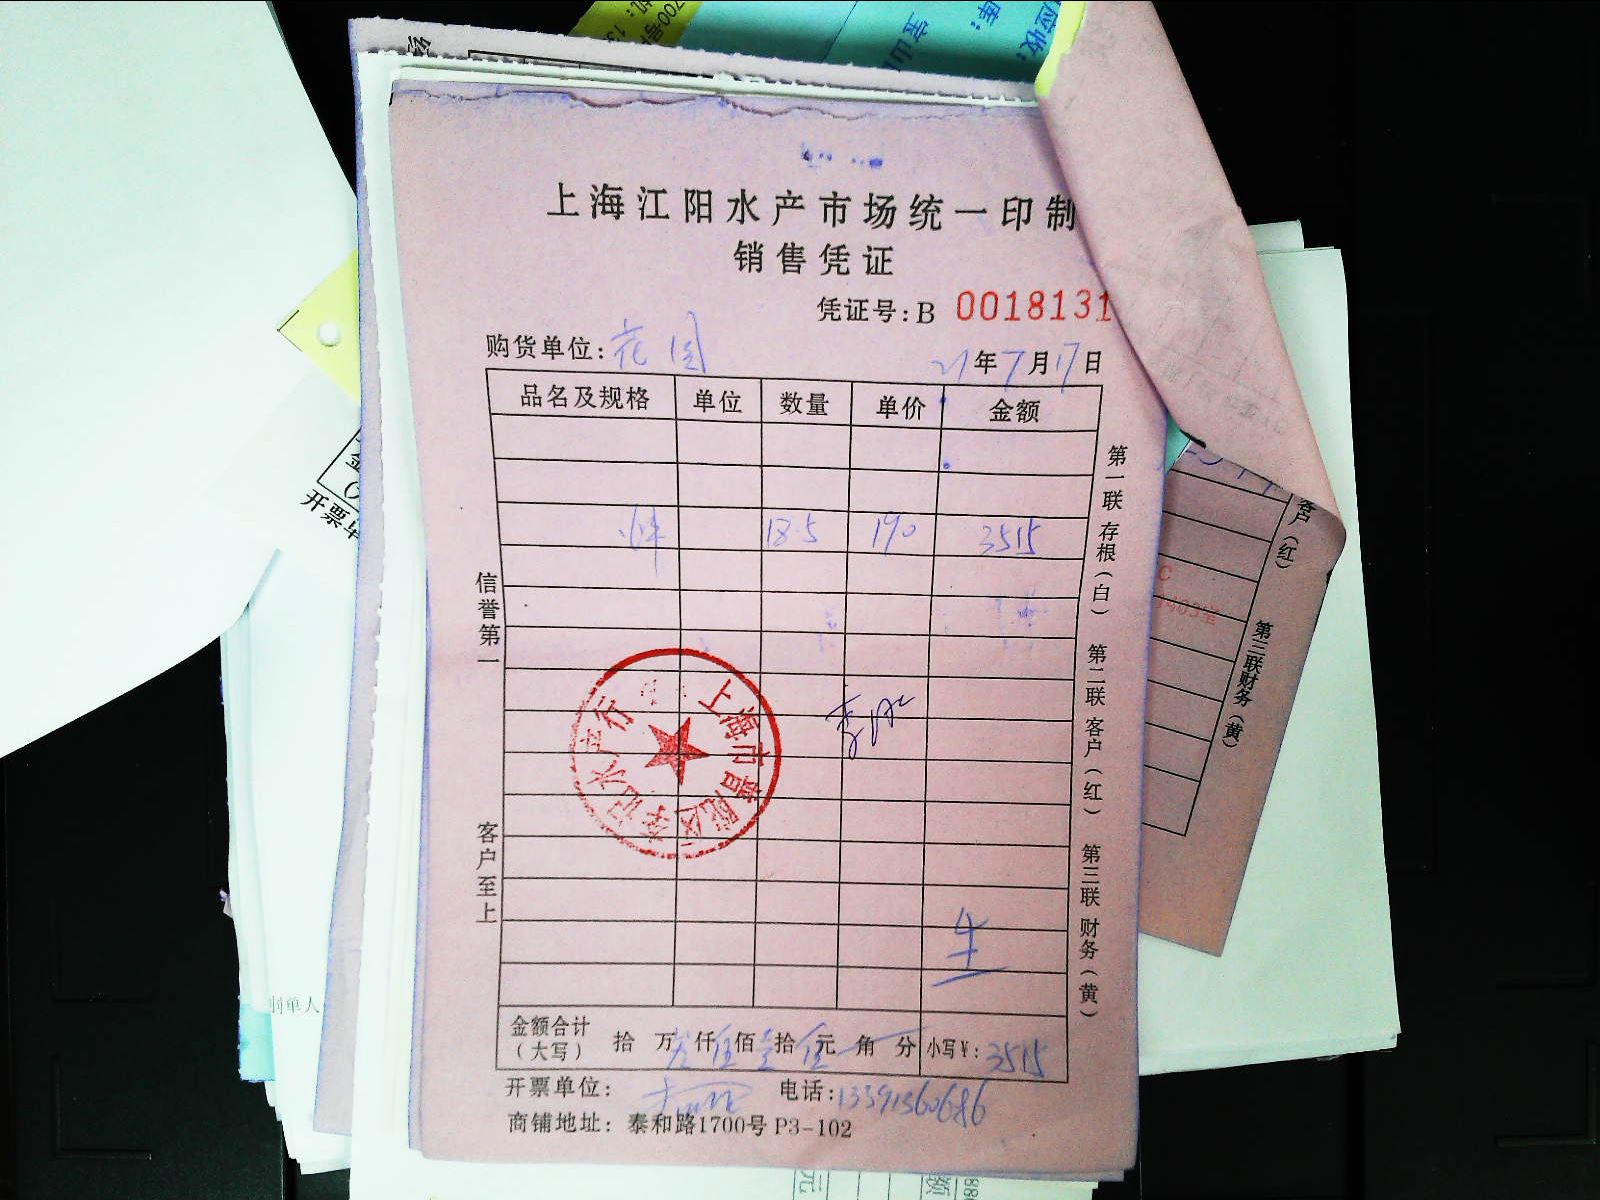 上海江阳水产市场统一印制
销售凭证
凭证号：B 0018131
购货单位：花园
21年7月17日
品名及规格 单位 数量 单价 金额
18.5 190 3515
信誉第一
客户至上
第一联 存根（白） 第二联 客户（红） 第三联 财务（黄）
上海市普陀区李记水产行
金额合计（大写） 拾 万 叁仟伍佰壹拾伍元 角 分 小写¥：3515
开票单位： 电话：13391360686
商铺地址：泰和路1700号 P3-102
客户（红）
第三联财务（黄）
开票单
制单人